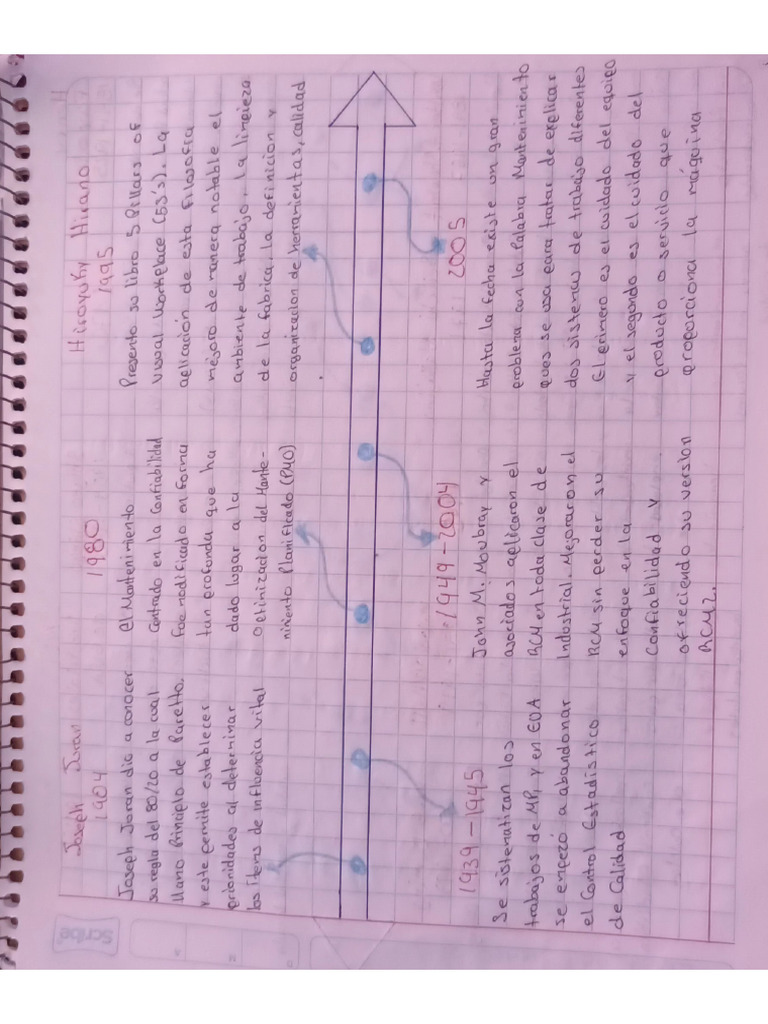 Joseph Juran
1904
Joseph Juran dio a conocer
su regla del 80/20 a la cual
llamo Principio de Paretto,
y este permite establecer
prionidades al determinar
los Items de influencia vital
1980
el Mantenimiento
Centrado en la Confiabilidad
fue modificado en forma
tan profunda que ha
dado lugar a la
Optimizacion del Mante-
nimiento Planificado (PMO)
Hiroyuky Hirano
1995
Presento su libro 5 Pillars of
Visual Workplace (5S's). La
aplicación de esta filosofia
mejoro de manera notable el
ambiente de trabajo, la limpieza
de la fabrica, la definicion y
organizacion de herramientas, calidad
.
1939-1945
Se sistematizan los
trabajos de MP, y en EUA
se empezó a abandonar
el Control Estadistico
de Calidad
1949-2004
John M. Moubray y
asociados aplicaron el
RCM en toda clase de
Industrial. Mejoraron el
RCM sin perder su
enfoque en la
Confiabilidad y
ofreciendo su version
RCM2.
2005
Hasta la fecha existe un gran
problema con la Palabra Mantenimiento
pues se usa para tratar de explicar
dos sistemas de trabajo diferentes
El primero es el cuidado del equipo
y el segundo es el cuidado del
producto o servicio que
proporciona la máquina
Scribe